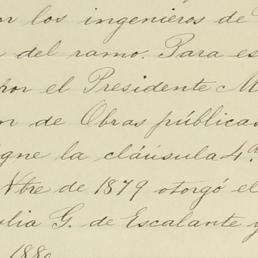 los ingenieros de
del ramo. Para es
el Presidente M
de Obras públicas
la cláusula 4ª
de 1879 otorgó el
G. de Escalante y
188